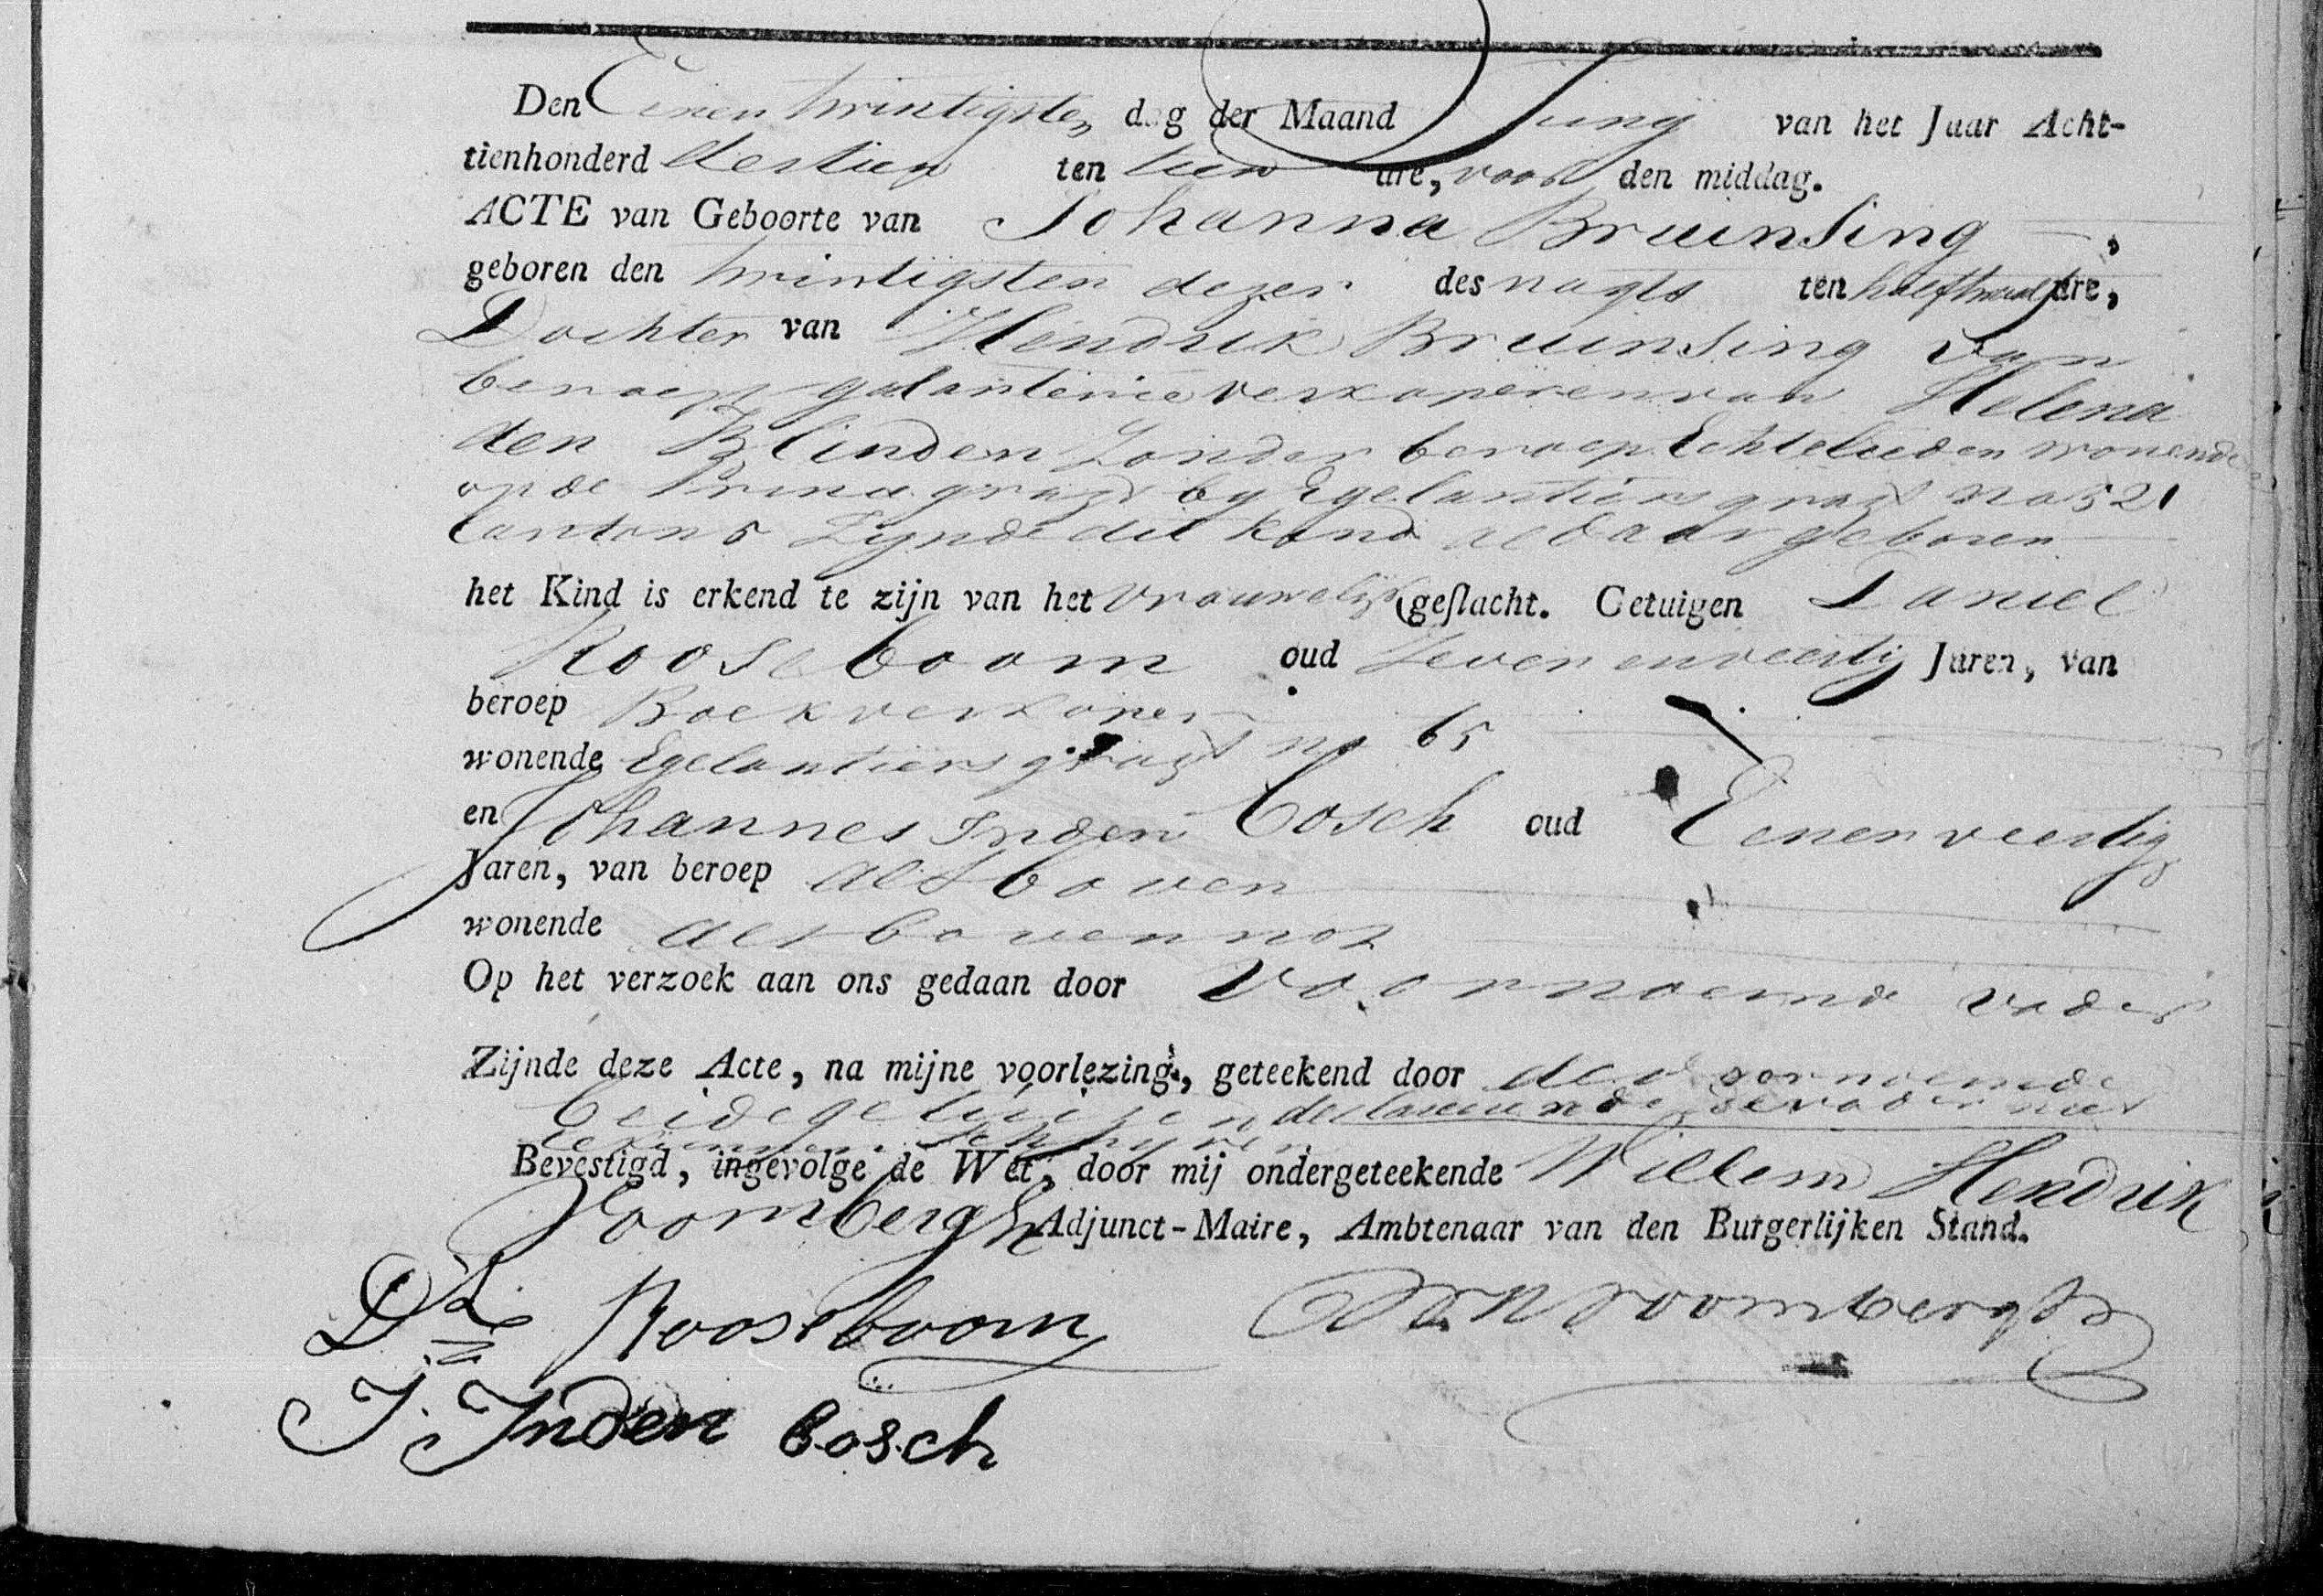 Den Eenentwintigsten dag der Maand Juny van het Jaar Acht-
tienhonderd dertien ten tien ure, voor den middag.
ACTE van Geboorte van Johanna Bruinsing,
geboren den twintigsten dezer des nagts ten half twaalf ure,
Dochter van Hendrik Bruinsing van
beroep galanterie verkoper en van Helena
den Blinden Zonder beroep Echtelieden wonende
op de Prince gragt by Egelantiers gragt no 521
Canton 5 Zynde dit kind aldaar geboren
het Kind is erkend te zijn van het vrouwelijk geslacht. Getuigen Daniel
Rooseboom oud Zeven en veertig Jaren, van
beroep Boekverkoper
wonende Egelantiers gragt no 65
en Johannes Inden bosch oud Eenenveertig
Jaren, van beroep als boven
wonende als boven no
Op het verzoek aan ons gedaan door Voornoemde vader
Zijnde deze Acte, na mijne voorlezing, geteekend door de voornoemde
beide getuigen declareerende de vader niet
te kunnen schryven
Bevestigd, ingevolge de Wet, door mij ondergeteekende Willem Hendrik
Voombergh Adjunct-Maire, Ambtenaar van den Burgerlijken Stand.
Dl Rooseboom W H Voombergh
J. Inden bosch